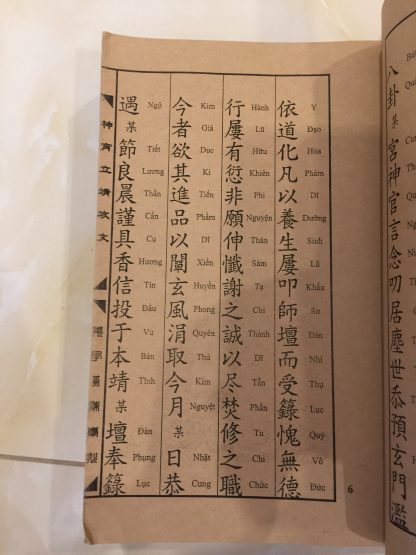 八卦某宮神官言念叨居塵世忝預玄門濫
依道化凡以養生屢叩師壇而受籙愧無德
Y Đạo Hóa Phàm Dĩ Dưỡng Sinh Lũ Khấu Sư Đàn Nhi Thụ Lục Quý Vô Đức
行屢有愆非願伸懺謝之誠以尽焚修之職
Hành Lũ Hữu Khiên Phi Nguyện Thân Sám Tạ Chi Thành Dĩ Tẫn Phần Tu Chi Chức
今者欲其進品以闡玄風涓取今月某日恭
Kim Giả Dục Kì Tiến Phẩm Dĩ Xiển Huyền Phong Quyên Thủ Kim Nguyệt Nhật Cung
遇某節良晨謹具香信投于本靖某壇奉籙
Ngộ Tiết Lương Thần Cẩn Cụ Hương Tín Đầu Vu Bản Tĩnh Đàn Phụng Lục
神霄立靖攻文
6